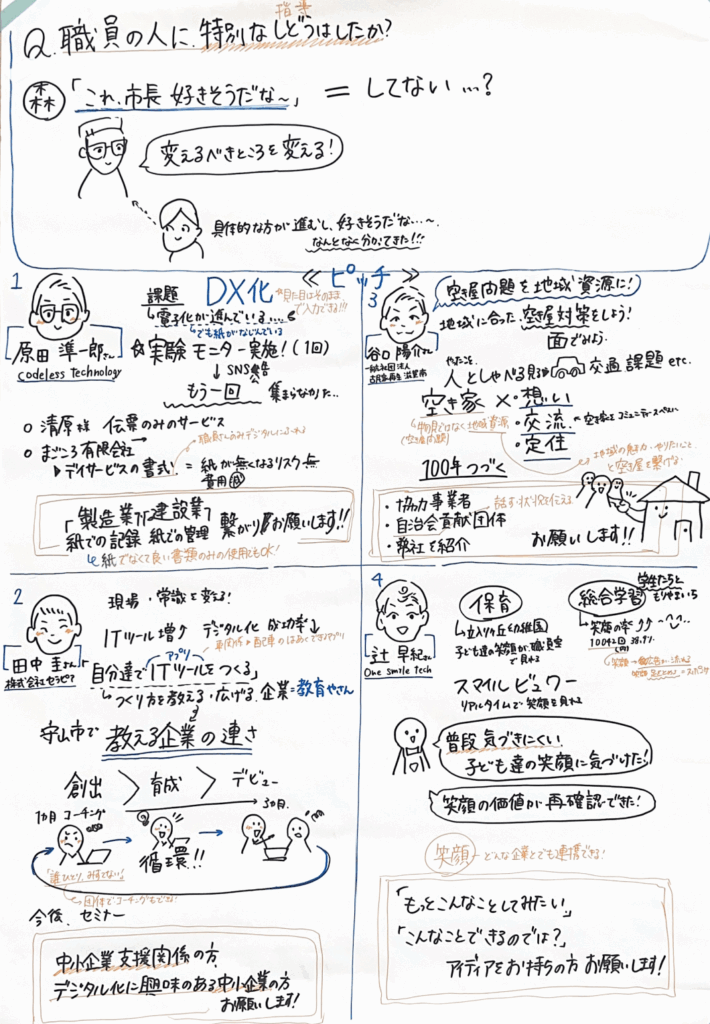 指導
Q.職員の人に特別なしどうはしたか?
森 「これ、市長 好きそうだな~」 = してない…?
変えるべきところを変える!
具体的な方が進むし、好きそうだな…~。
なんとなく分かってきた!!!
≪ピッチ≫
1
原田 準一郎さん
codeless technology
課題 DX化
電子化が進んでいる…
でも紙がなじんでいる
見た目はそのままで入力できる!!!
☆実験モニター実施!(1回)
↓SNS
もう一回 集まらなかった…
○ 清原様 伝票のみのサービス
○ まごころ有限会社
▶デイサービスの書式 = 紙が無くなるリスク無
費用
「製造業」「建設業」
紙での記録 紙での管理 繋がりお願いします!!
↳紙でなくて良い書類のみの使用もOK!
3
谷口 陽介さん
一般社団法人
古民家再生 滋賀南
空き屋問題を地域資源に!
地域に合った空き屋対策をしよう!
面でみよう。
やったこと
人としゃべる 交通課題 etc.
空き家 × ・想い
・交流
・定住
・空き家をコミュニティスペースへ
物見ではなく地域資源
(空き屋問題)
地域の魅力・やりたいこと
と空き屋を繋げる
100年つづく
・協力事業者
・自治会貢献団体
・弊社を紹介
話す・状況を伝える
お願いします!!
2
田中 圭さん
株式会社セラピア
現場・常識を変える!
ITツール増↗ デジタル化 成功率↓
アプリ
「自分達でITツールをつくる」
つくり方を教える・広げる 企業=教育やさん
守山市で 教える企業の連さ
創出 > 育成 > デビュー
1ヵ月 コーチング
3ヵ月
循環!!
「誰ひとりみすてない」
→団体でコーチングもできる!
今後、セミナー
中小企業支援関係の方、
デジタル化に興味のある中小企業の方
お願いします!
4
辻 早紀さん
One smile tech
保育
↳立入が丘幼稚園
子ども達の笑顔が、職員室
で見れる
総合学習
学生たちと
もりやまいち
↳笑顔の率↗↗
スマイルビュワー
リアルタイムで笑顔を見れる
普段 気づきにくい
子ども達の笑顔に気づけた!
笑顔の価値が再確認できた!
笑顔 → どんな企業とでも連携できる!
「もっとこんなことしてみたい」
「こんなことできるのでは?」
アイディアをお持ちの方 お願いします!